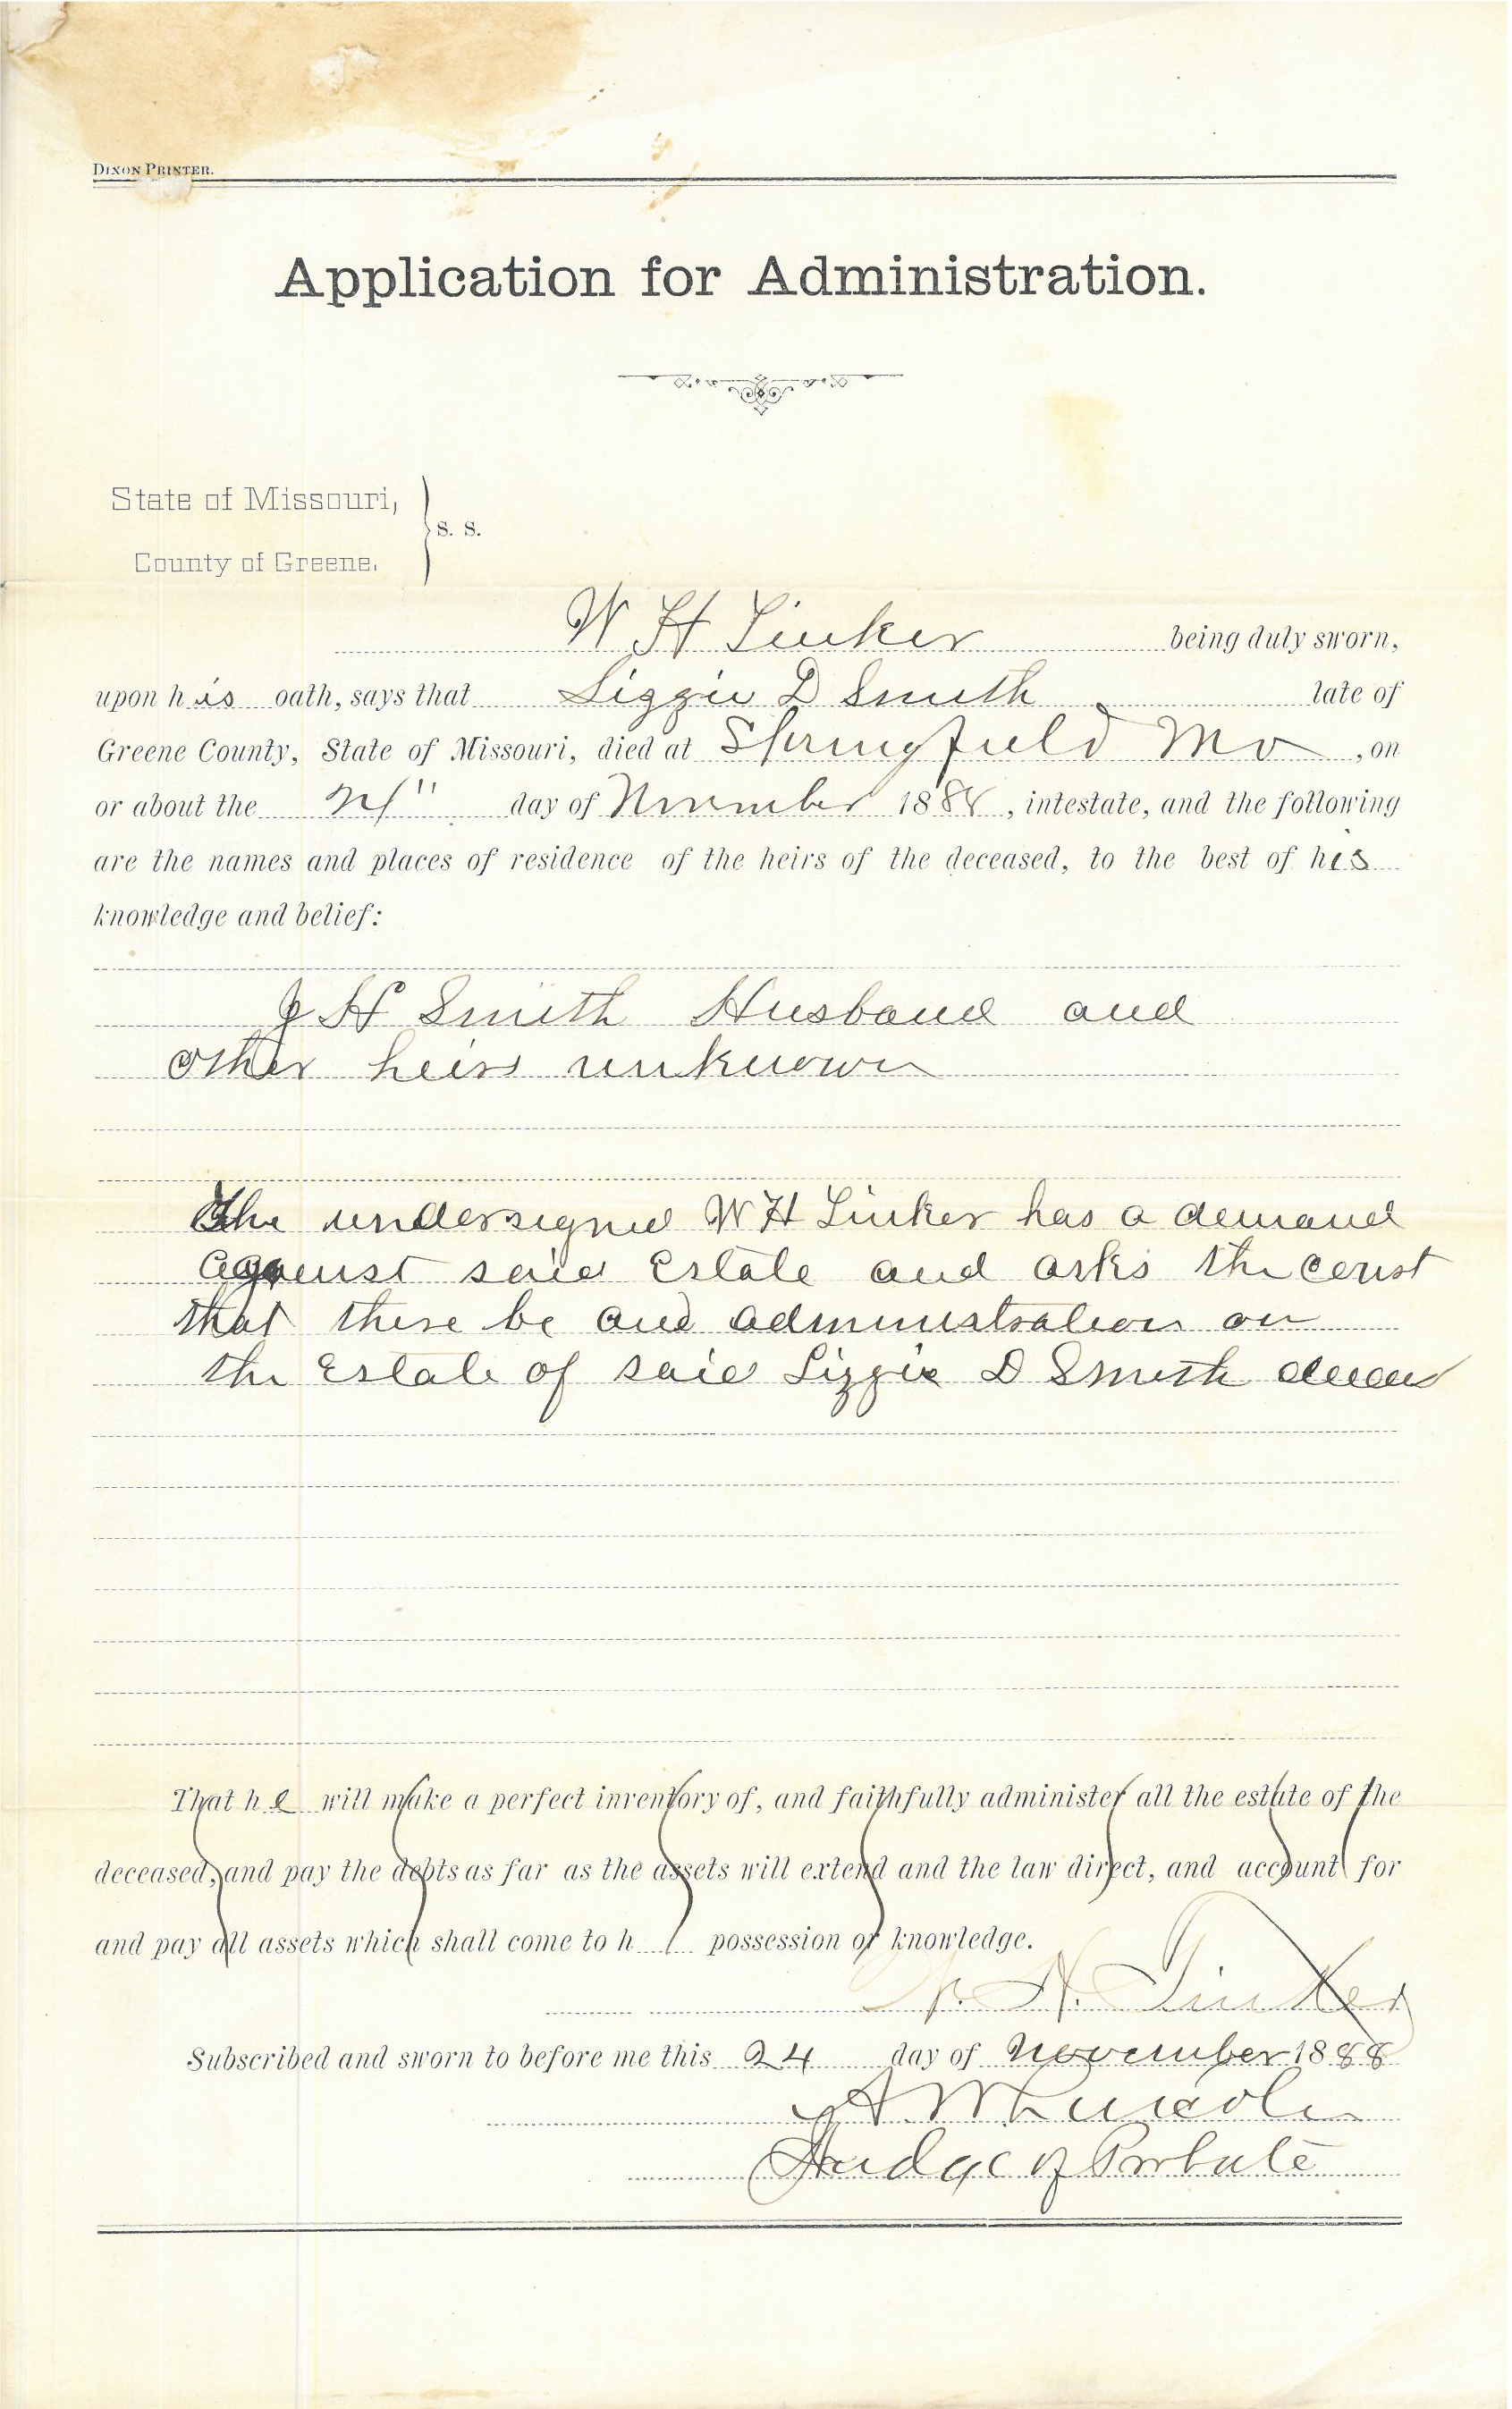 DIXON PRINTER.
Application for Administration.
State of Missouri,
S. S.
County of Greene.
W H Tinker being duly sworn,
upon his oath, says that Lizzie D Smith late of
Greene County, State of Missouri, died at Springfield Mo, on
or about the day of November 1888, intestate, and the following
are the names and places of residence of the heirs of the deceased, to the best of his
knowledge and belief:
J H Smith Husband and
other heirs unknown
The undersigned W H Tinker has a demand
against said Estate and asks the court
that there be and administration on
the Estate of said Lizzie D Smith
That he will make a perfect inventory of, and faithfully administer all the estate of the
deceased, and pay the debts as far as the assets will extend and the law direct, and account for
and pay all assets which shall come to h possession or knowledge.
W. H. Tinker
Subscribed and sworn to before me this 24 day of November 1888
Lincoln
Judge of Probate